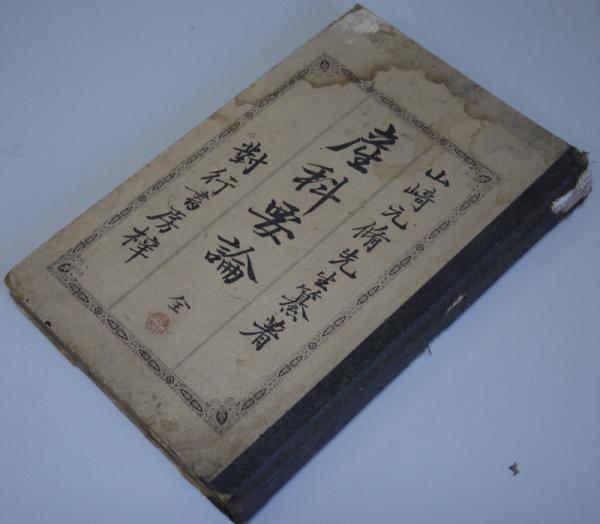 山崎元脩先生纂著
産科要論 全
對行書房梓